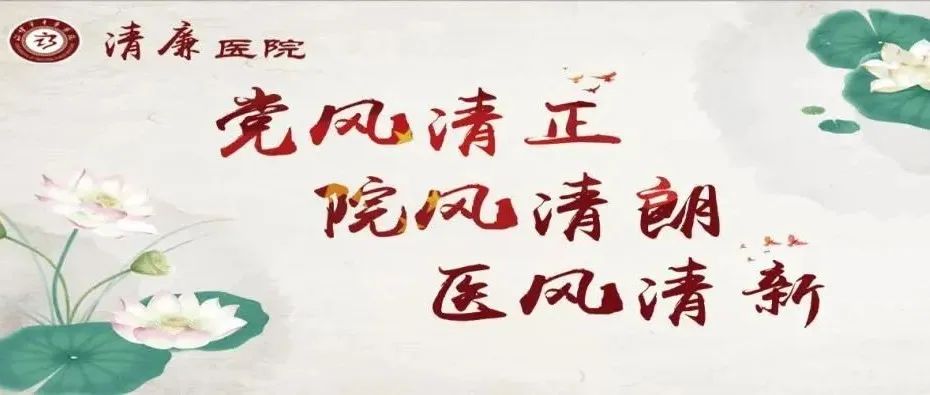 清廉医院
党风清正
院风清朗
医风清新